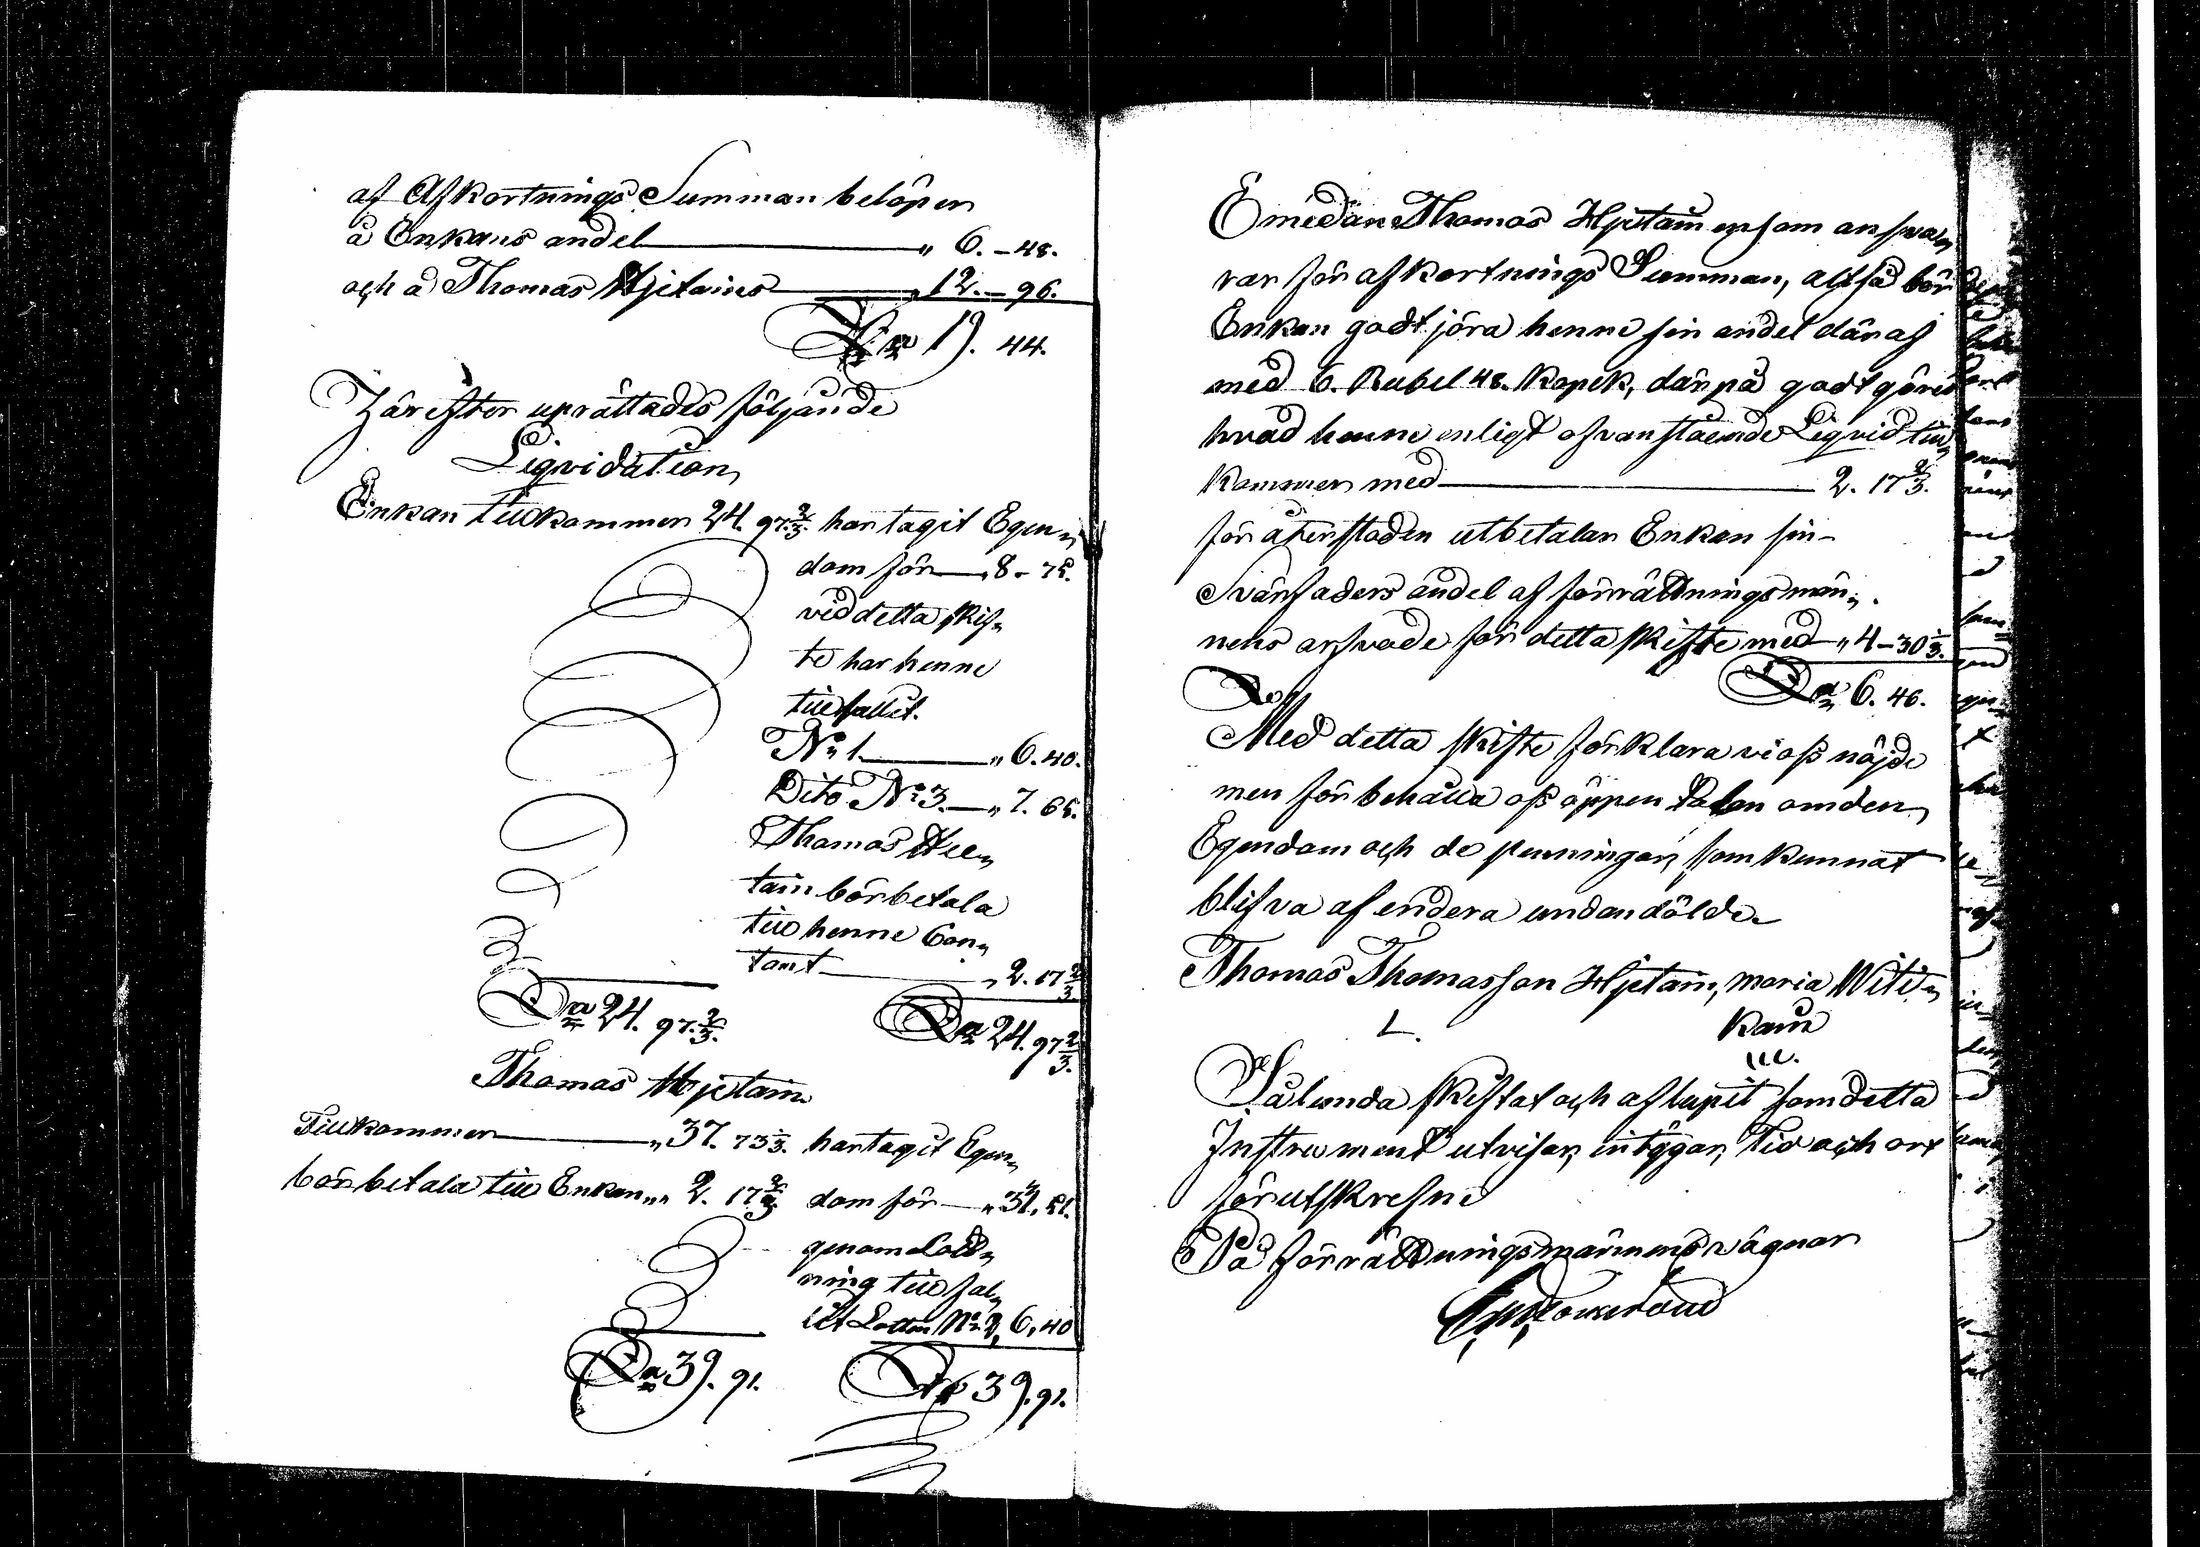 af Afkortnings Summan belöper
å Enkans andel " 6. - 48.
och å Thomas Hjetains " 12. - 96.
S:a 19. 44.
Härefter uprättades följande
Liqvidation,
Enkan tillkommer 24. 97. 2/3. har tagit Egen„
dom för " 8 - 75.
vid detta skif„
te har henne
tillfallit.
N:o 1. " 6. 40.
Dito N:o 3. " 7. 65.
Thomas
tain bör betala
till henne Con„
tant " 2. 17 2/3.
S:a 24. 97. 2/3. S:a 24. 97 2/3.
Thomas Hjetain
Tillkommer " 37. 73 1/3. har tagit Egen„
bör betala till Enkan „ 2. 17 2/3. dom för " 51.
genom Lott„
ning till fal„
lit Lotten N:o 2, 6, 40
S:a 39. 91. 39. 91.
Emedan Thomas Hjetain ensam answa„
rar för afkortnings Summan, altså bör
Enkan godtjöra henne sin andel däraf
med 6. Rubel 48. Kopek, därpå godtgöres
hvad henne enligt ofvanstående Liqvid till„
kommer med 2. 17 2/3.
för återstoden utbetalar Enkan sin
Svärfaders andel af förrättningsmän„
nens arfvode för detta skifte med " 4 - 30 1/3.
S:a 6. 48.
Med detta skifte förklara vi oss nöjde
men förbehålla oss öppen talan om den
Egendom och de penningar, som kunnat
blifva af endera undandölde.
Thomas Thomasson Hjetain, Maria Witi„
kain
Sålunda skiftat och aflupit som detta
Instrument utvisar, intygar, Tid och ort
förutskrefne
På förrättningsmännens vägnar